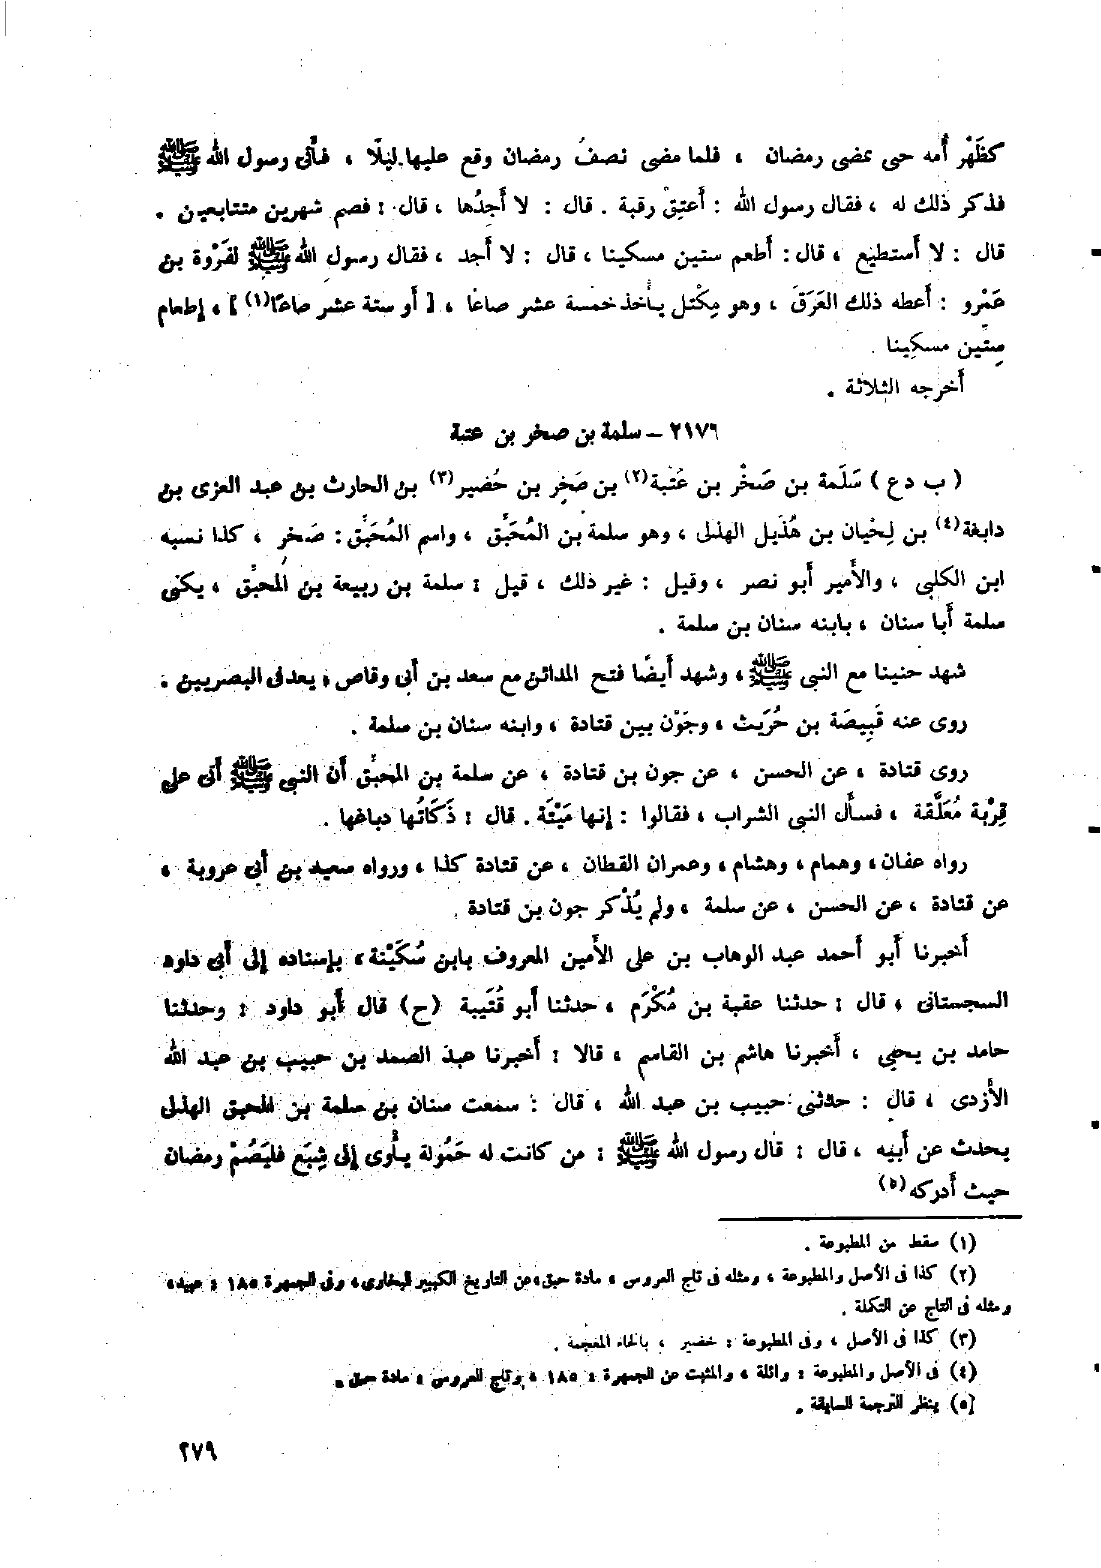 كظَهْر أُمه حتى يمضى رمضان ، فلما مضى نصفُ رمضان وقع عليها ليلًا ، فأَتى رسول الله ﷺ
فذكر ذلك له ، فقال رسول الله : أَعتِقْ رقبة . قال : لا أَجدُها ، قال : فصم شهرين متتابعين .
قال : لا أَستطيع ، قال : أَطعم ستين مسكينا ، قال : لا أَجد ، فقال رسول الله ﷺ لفَرْوة بن
عَمْرو : أَعطه ذلك العَرَقَ ، وهو مِكْتل يأْخذ خمسة عشر صاعًا ، [ أَو ستة عشر صاعًا(١) ] ، إطعام
سِتِّين مسكِينا .
أَخرجه الثلاثة .
٢١٧٩ – سلمة بن صخر بن عتبة
( ب د ع ) سَلَمة بن صَخْر بن عُتْبة(٢) بن صَخِر بن حُضير(٣) بن الحارث بن عبد العزى بن
دابغة(٤) بن لِحْيان بن هُذَيل الهذلى ، وهو سلمة بن المُحَبِّق ، واسم المُحَبِّق : صَخرِ ، كذا نسبه
ابن الكلبى ، والأَمير أَبو نصر ، وقيل : غير ذلك ، قيل : سلمة بن ربيعة بن المحبِّق ، يكنى
سلمة أَبا سنان ، بابنه سنان بن سلمة .
شهد حنينا مع النبى ﷺ ، وشهد أَيضًا فتح المدائن مع سعد بن أَبى وقاص ، يعد فى البصريين .
روى عنه قَبِيصَة بن حُرَيث ، وجَوْن بين قتادة ، وابنه سنان بن سلمة .
روى قتادة ، عن الحسن ، عن جون بن قتادة ، عن سلمة بن المحبِّق أَن النبى ﷺ أَتى على
قِرْبة مُعَلَّقة ، فسأَل النبى الشراب ، فقالوا : إنها مَيْتَة . قال : ذَكَاتُها دباغها .
رواه عفان ، وهمام ، وهشام ، وعمران القطان ، عن قتادة كذا ، ورواه سعيد بن أَبى عروبة ،
عن قتادة ، عن الحسن ، عن سلمة ، ولم يُذْكر جون بن قتادة .
أَخبرنا أَبو أَحمد عبد الوهاب بن على الأَمين المعروف بابن سُكَيْنة ، بإسناده إلى أَبى داود
السجستانى ، قال : حدثنا عقبة بن مُكْرَم ، حدثنا أَبو قُتَيبة (ح) قال أَبو داود : وحدثنا
حامد بن يحيى ، أَخبرنا هاشم بن القاسم ، قالا : أَخبرنا عبد الصمد بن حبيب بن عبد الله
الأَزدى ، قال : حدثنى حبيب بن عبد الله ، قال : سمعت سنان بن سلمة بن المحبق الهذلى
يحدث عن أَبيه ، قال : قال رسول الله ﷺ : من كانت له حَمُولة يأْوى إلى شِبَع فليَصُمْ رمضان
حيث أَدركه(٥)
(١) سقط من المطبوعة .
(٢) كذا فى الأصل والمطبوعة ، ومثله فى تاج العروس ، مادة حبق ، عن التاريخ الكبير البخارى ، وفى الجمهرة ١٨٥ : عبيد ،
ومثله فى التاج عن التكلة .
(٣) كذا فى الأصل ، وفى المطبوعة : خضير ، بالخاء المعجمة .
(٤) فى الأصل والمطبوعة : وائلة ، والمثبت عن الجمهرة : ١٨٥ ، وتاج العروس ، مادة حبق .
(٥) ينظر الترجمة السابقة .
٢٧٩